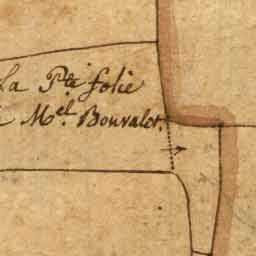 La Pte folie
Mel. Bouvalot.